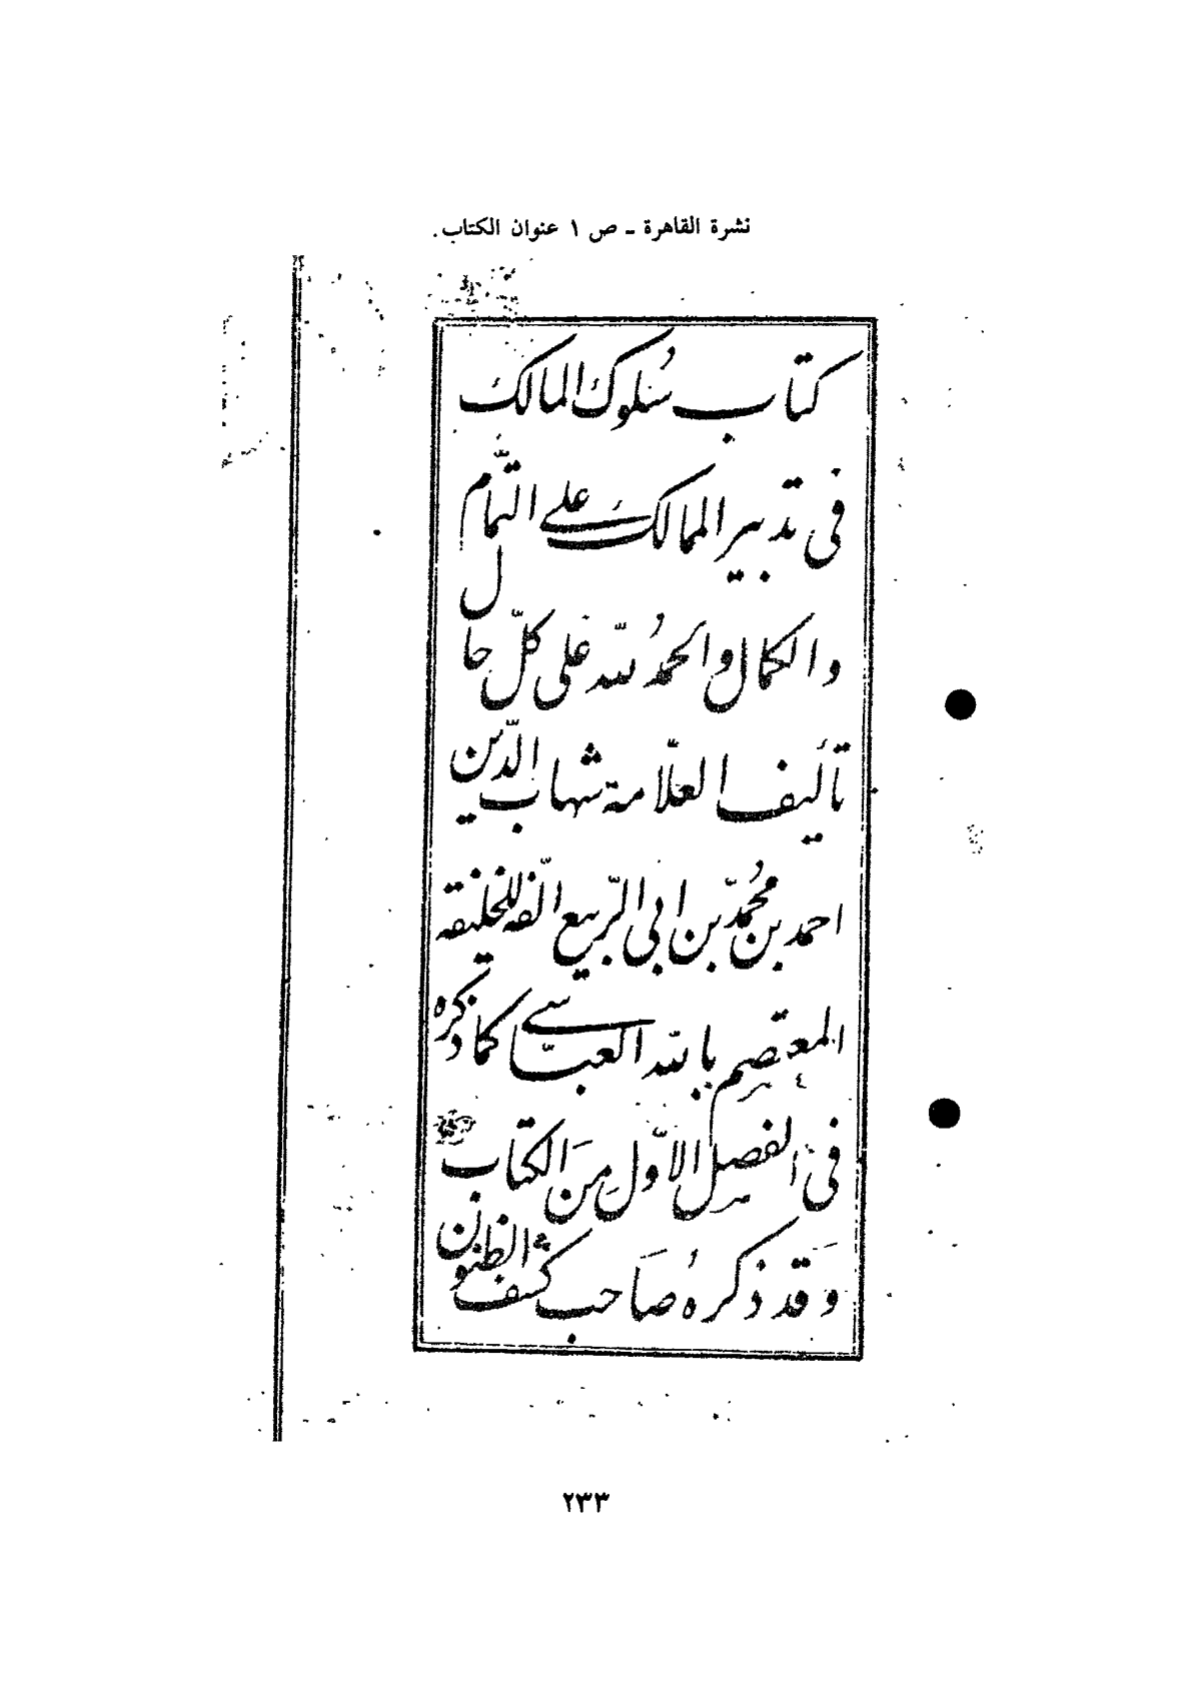 نشرة القاهرة ـ ص ١ عنوان الكتاب.
كتاب سُلوك المالك
فى تدبير الممالك على التّمام
والكمال والحمدُ للّه عَلى كلّ حال
تأليف العلّامة شهاب الدّين
احمد بن محُمّد بن ابى الرّبيع الّفه للخليفة
المعتصم باللّه العبّاسى كما ذكره
فى الفصل الاوّلِ مِنَ الكتاب
وَقد ذكرهُ صَاحب كشف الظنون
٢٣٣